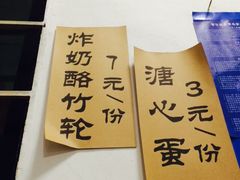 炸奶酪竹轮
7元/份
溏心蛋
3元/份